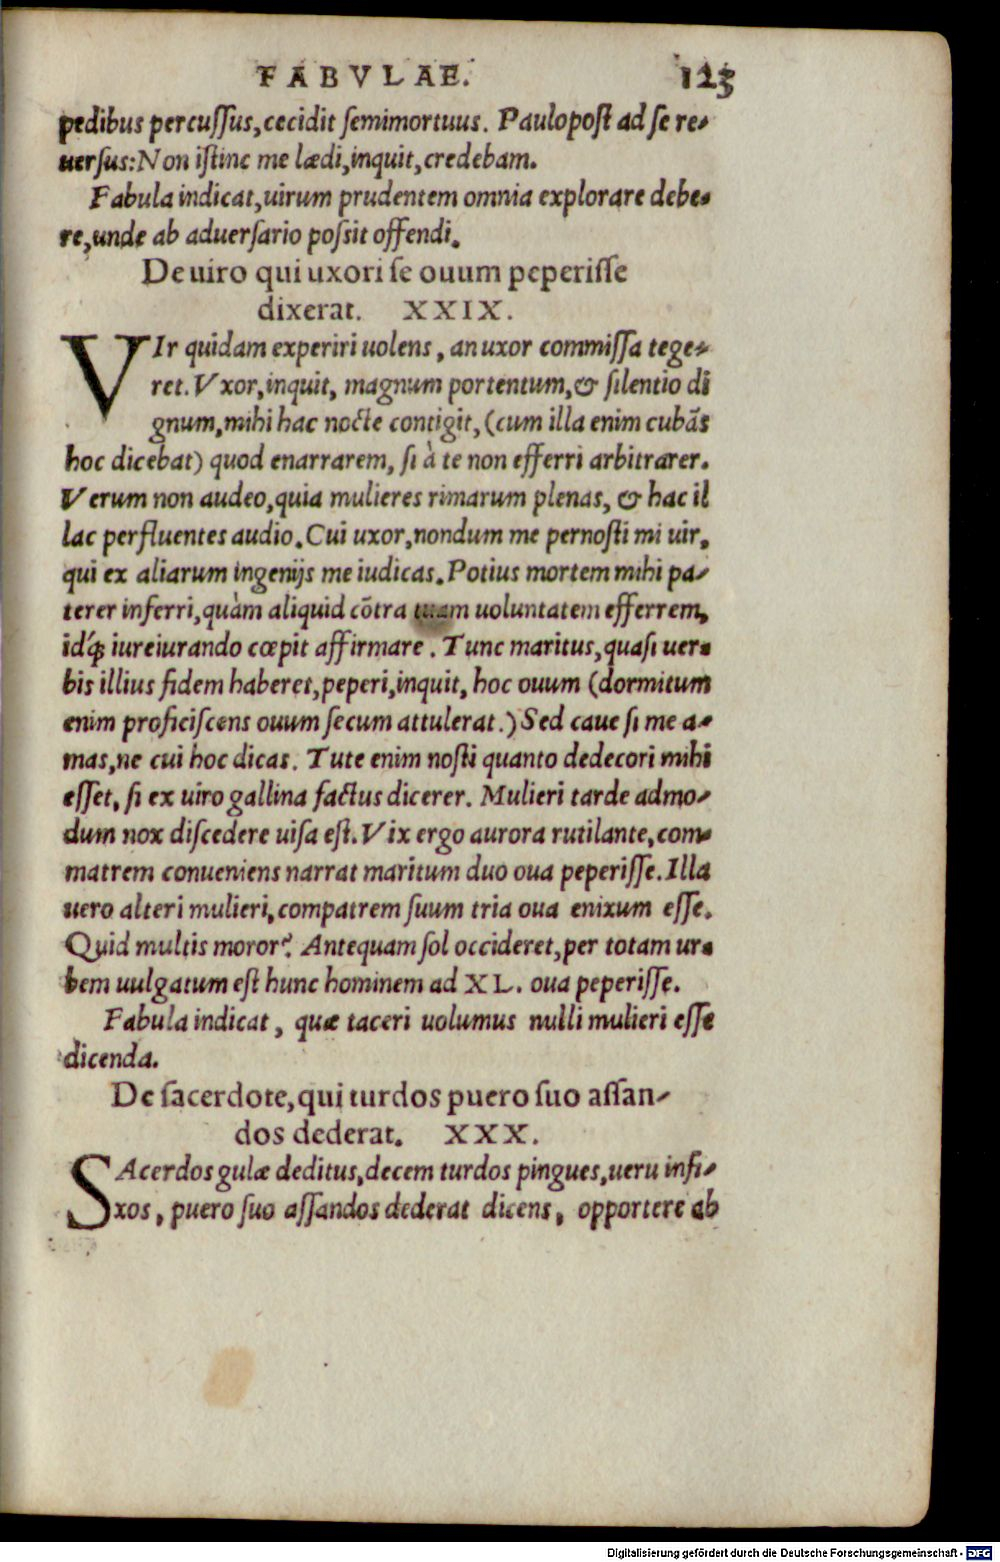 FABVLAE. 123
pedibus percuſſus, cecidit ſemimortuus. Paulopoſt ad ſe re-
uerſus: Non iſtinc me lædi, inquit, credebam.
Fabula indicat, uirum prudentem omnia explorare debe-
re, unde ab aduerſario poſsit offendi.
De uiro qui uxori ſe ouum peperiſſe
dixerat. XXIX.
VIr quidam experiri uolens, an uxor commiſſa tege-
ret. Vxor, inquit, magnum portentum, & ſilentio di
gnum, mihi hac nocte contigit, (cum illa enim cubãs
hoc dicebat) quod enarrarem, ſi à te non efferri arbitrarer.
Verum non audeo, quia mulieres rimarum plenas, & hac il
lac perfluentes audio. Cui uxor, nondum me pernoſti mi uir,
qui ex aliarum ingenijs me iudicas. Potius mortem mihi pa-
terer inferri, quàm aliquid cõtra tuam uoluntatem efferrem,
idq́; iureiurando cœpit affirmare. Tunc maritus, quaſi uer-
bis illius fidem haberet, peperi, inquit, hoc ouum (dormitum
enim proficiſcens ouum ſecum attulerat.) Sed caue ſi me a-
mas, ne cui hoc dicas. Tute enim noſti quanto dedecori mihi
eſſet, ſi ex uiro gallina factus dicerer. Mulieri tarde admo-
dum nox diſcedere uiſa eſt. Vix ergo aurora rutilante, com-
matrem conueniens narrat maritum duo oua peperiſſe. Illa
uero alteri mulieri, compatrem ſuum tria oua enixum eſſe.
Quid multis moror? Antequam ſol occideret, per totam ur-
bem uulgatum eſt hunc hominem ad XL. oua peperiſſe.
Fabula indicat, quæ taceri uolumus nulli mulieri eſſe
dicenda.
De ſacerdote, qui turdos puero ſuo aſſan-
dos dederat. XXX.
SAcerdos gulæ deditus, decem turdos pingues, ueru infi-
xos, puero ſuo aſſandos dederat dicens, opportere ab
Digitalisierung gefördert durch die Deutsche Forschungsgemeinschaft - DFG